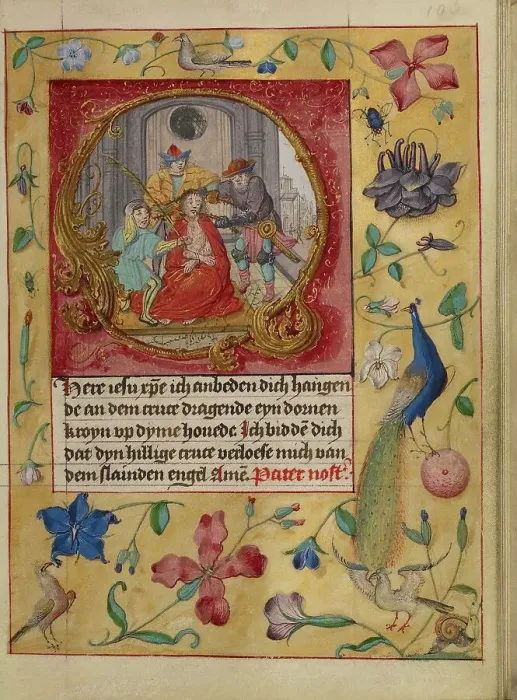 Here iesu xp̄e ich anbeden dich hangen
de an dem cruce dragende eyn dornen
kroyn vp dyme houede. Ich bidden dich
dat dyn hillige cruce verloese mich van
dem slainden engel Amē. Pater nost̉.